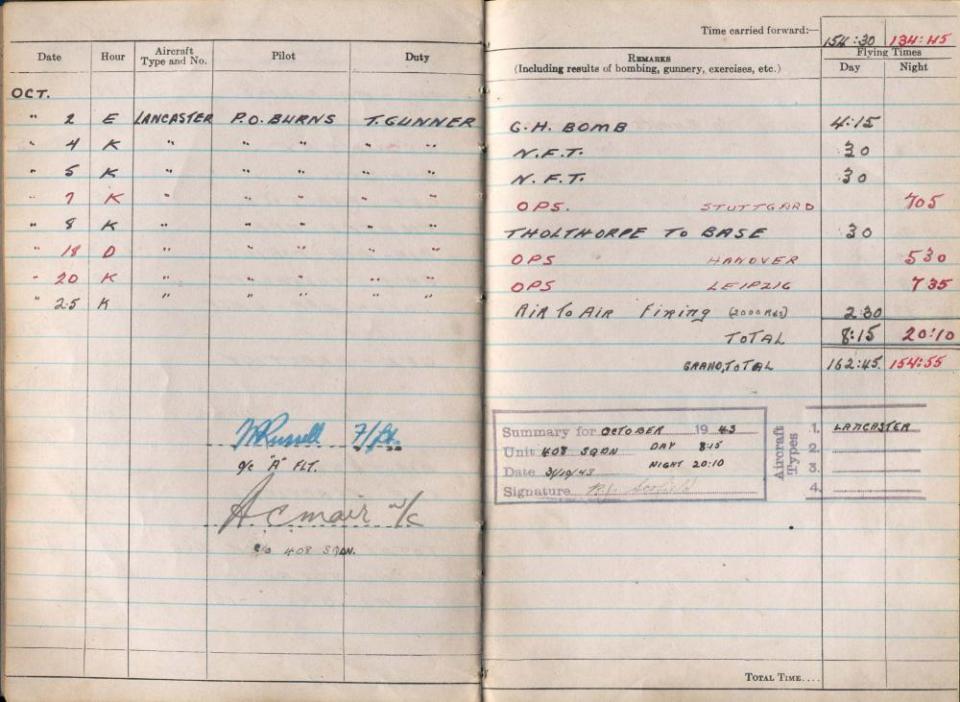 Time carried forward:— 154:30 134:45
Date Hour Aircraft Type and No. Pilot Duty REMARKS (Including results of bombing, gunnery, exercises, etc.) Flying Times Day Night
OCT.
" 2 E LANCASTER P.O. BURNS T. GUNNER G.H. BOMB 4:15
" 4 K " " " " " N.F.T. 30
" 5 K " " " " " N.F.T. 30
" 7 K " " " " " OPS. STUTTGARD 705
" 8 K " " " " " THOLTHORPE TO BASE 30
" 18 D " " " " " OPS HANOVER 530
" 20 K " " " " " OPS LEIPZIG 735
" 25 K " " " " " AIR TO AIR FIRING (2000 RDS) 2 30
TOTAL 8:15 20:10
GRAND TOTAL 162:45 154:55
WRussell F/Lt.
o/c "A" FLT.
A C Mair W/C
c/o 408 SQDN.
Summary for OCTOBER 1943
Unit 408 SQDN DAY 8:15
Date 31/10/43 NIGHT 20:10
Signature
Aircraft Types
1. LANCASTER
2
3.
4.
TOTAL TIME....